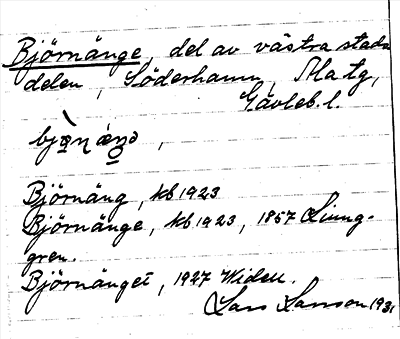 Björnänge, del av västra stads
delen, Söderhamn, Ma tg,
Gävleb. l.
Björnäng, kb 1923
Björnänge, kb 1923, 1857 Ljung-
gren.
Björnänget, 1927 Widell.
Lars Larsson 1931